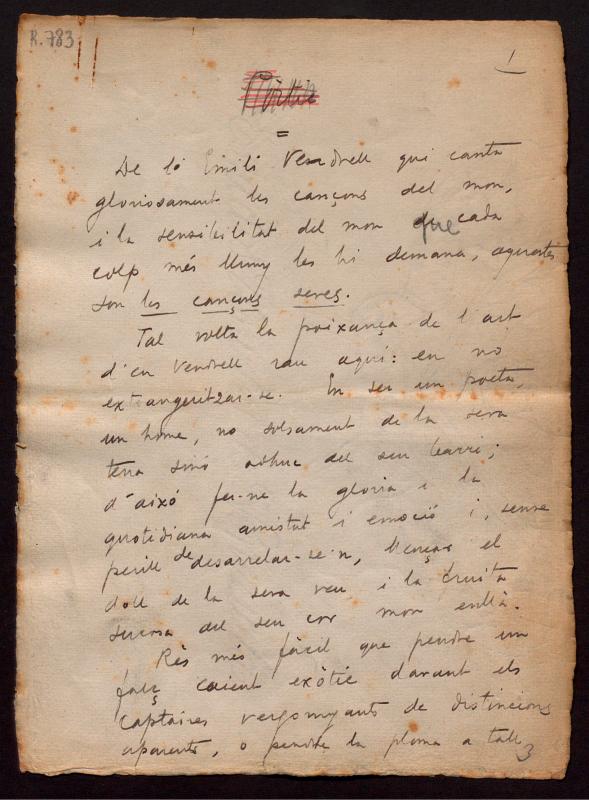 R. 783
1
Pòrtic
De lo Emili Vendrell qui canta
gloriosament les cançons del mon,
i la sensibilitat del mon que cada
colp més lluny les hi demana, aquestes
son les cançons seves.
Tal volta la poixança de l'art
d'en Vendrell rau aquí: en no
extrangeritzar-se. En ser un poeta,
un home, no solsament de la seva
terra sinó adhuc del seu barri;
d'aixó fer-ne la gloria i la
quotidiana amistat i emoció i, sense
perill de desarrelar-se'n, llençar el
doll de la seva veu i la fruita
sucosa del seu cor mon enllà.
Rès més fàcil que pendre un
falç caient exòtic davant els
captaires vergonyants de distincions
aparents, o pendre la ploma a tall
3